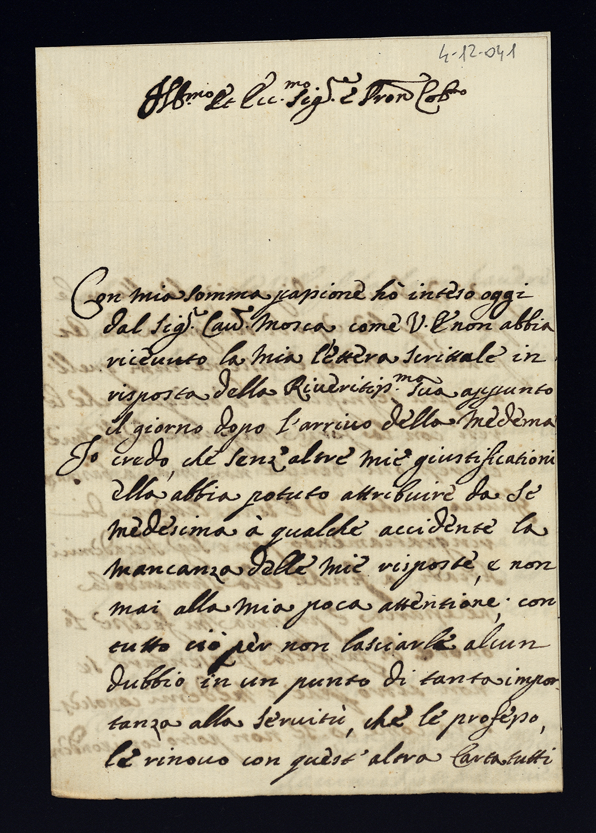 4-12-041
Ill.mo et Ecc.mo Sig.re e Pron Col.mo
Con mia somma passione hò inteso oggi
dal Sig.r Cav.r Mosca come V.E. non abbia
ricevuto la mia lettera scrittale in
risposta della Riveritiss.ma sua appunto
il giorno dopo l'arrivo della medema
Io credo, che senz'altre mie giustificationi
ella abbia potuto attribuire da se
medesima à qualche accidente la
mancanza delle mie risposte, e non
mai alla mia poca attentione; con
tutto ciò per non lasciarle alcun
dubbio in un punto di tanta impor-
tanza alla servitù, che le professo,
le rinovo con quest'altra Carta tutti